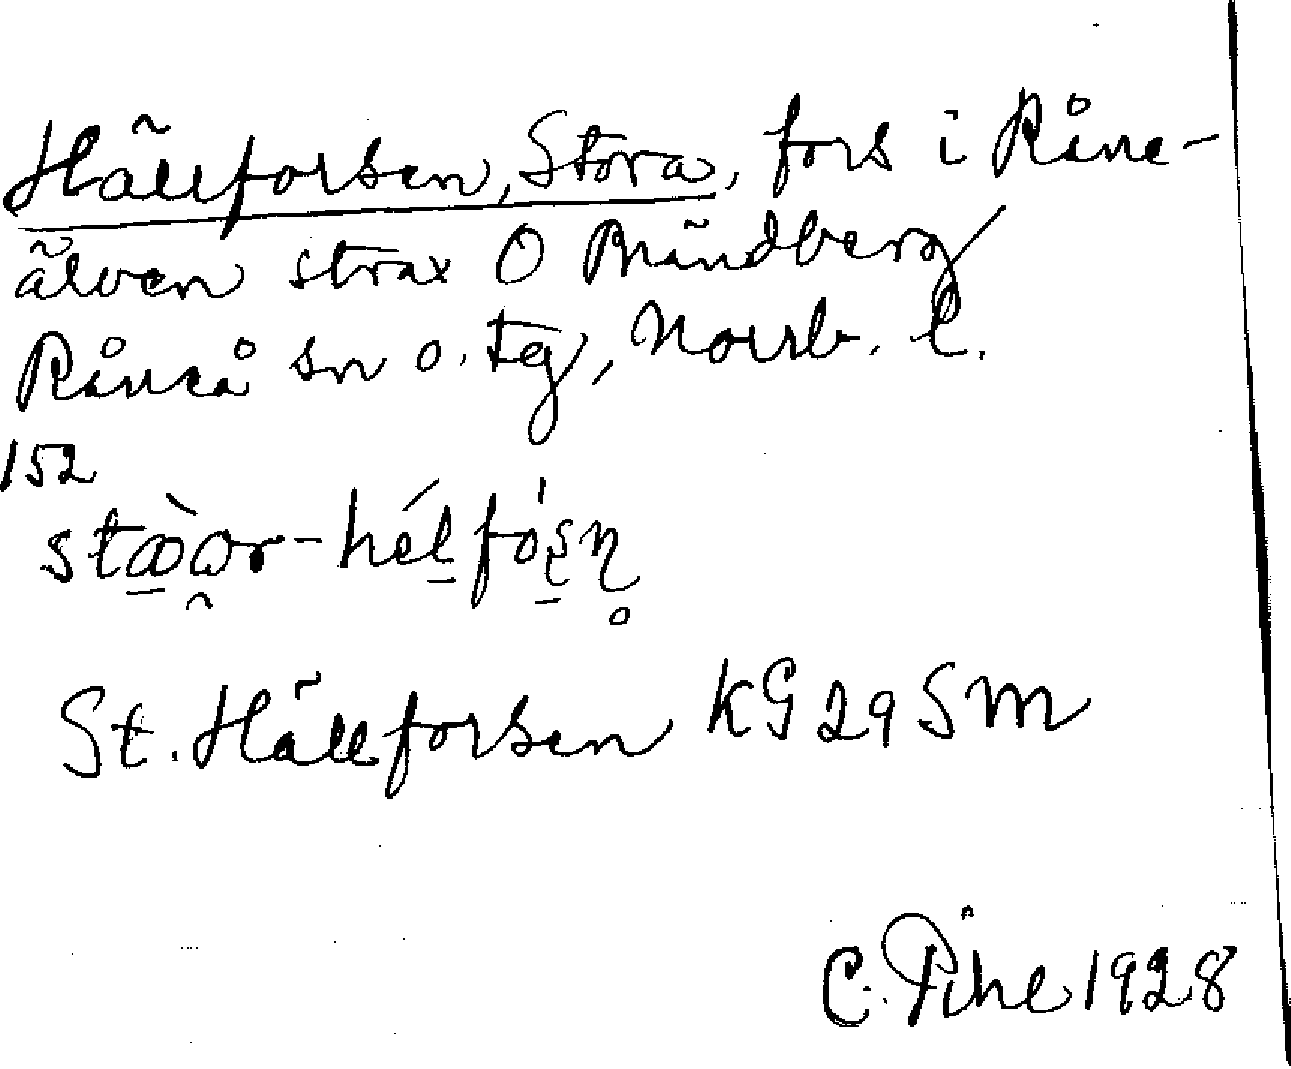 Hällforsen, Stora, fors i Råne-
älven strax O Brändberg
Råneå sn o. tg, Norrb. l.
152
St. Hällforsen KG 29 SM
C. Pihl 1928